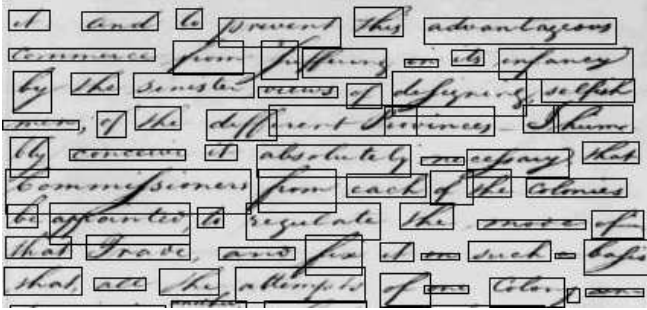 it and to prevent this advantageous
Commerce from suffering in its infancy
by the sinister views of designing, selfish
men, of the different Provinces - I hum
bly conceive it absolutely necessary that
Commissioners from each of the Colonies
be appointed, to regulate the mode of
that Trade, and fix it on such a basis
that, all the attempts of one Colony